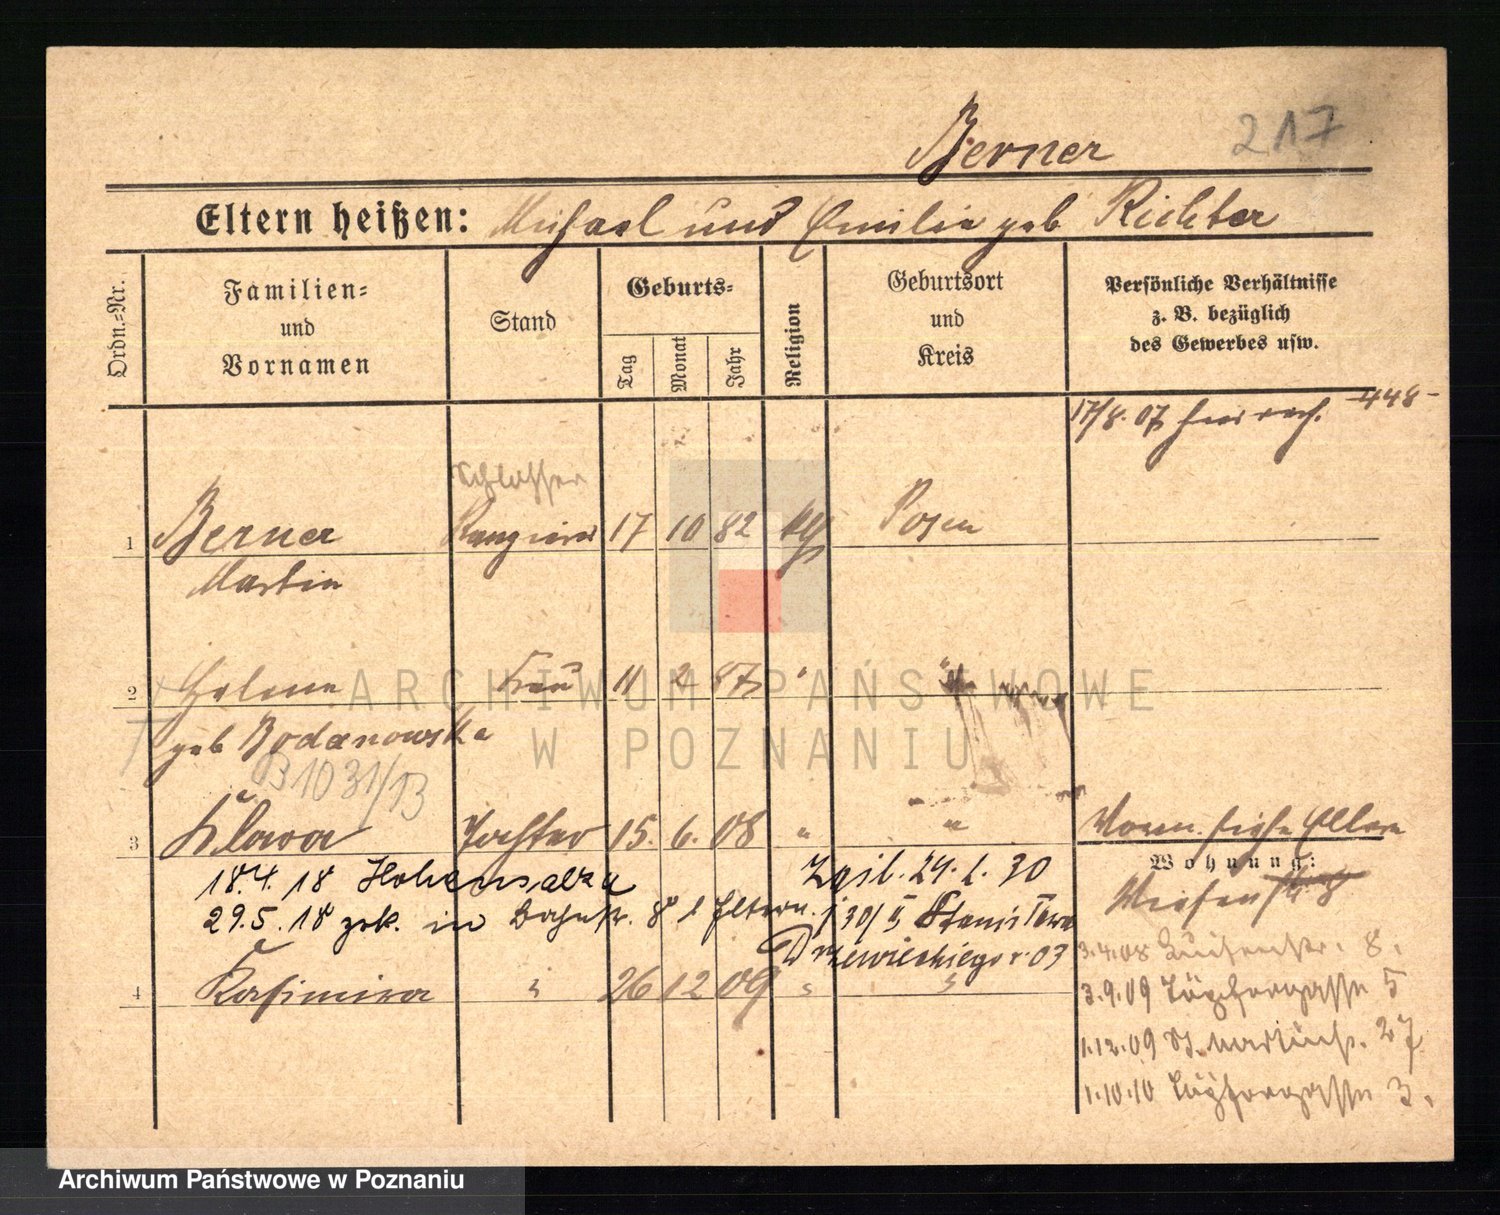 Berner 217
Eltern heißen: Michael und Emilie geb Richter
Ordn.=Nr.
Familien=
und
Vornamen
Stand
Geburts=
Tag
Monat
Jahr
Religion
Geburtsort
und
Kreis
Persönliche Verhältnisse
z. B. bezüglich
des Gewerbes usw.
17/8. 07 448
Schlosser
1 Berner 17 10 82 kth Posen
Martin
2 Helene Frau 11 2 87 "
geb Bogdanowska
B 1031/13
3 Klara Tochter 15. 6. 08 " " Vorn. siehe Eltern
Wohnung:
18.4. 18 Hohensalza Zgil. 24. 1. 30 Wiesenstr 8
29.5.18 zrk. in Bahnstr. 8 Eltern. 30/ Stanisława
Drzewieckiego r. 03
3.4.08 8.
4 Kasimira " 26 12 09 " "
3.9.09 Töpfergasse 5
1.12.09 St. Martinstr. 27
1.10.10 Töpfergasse 3.
ARCHIWUM PAŃSTWOWE
W POZNANIU
Archiwum Państwowe w Poznaniu